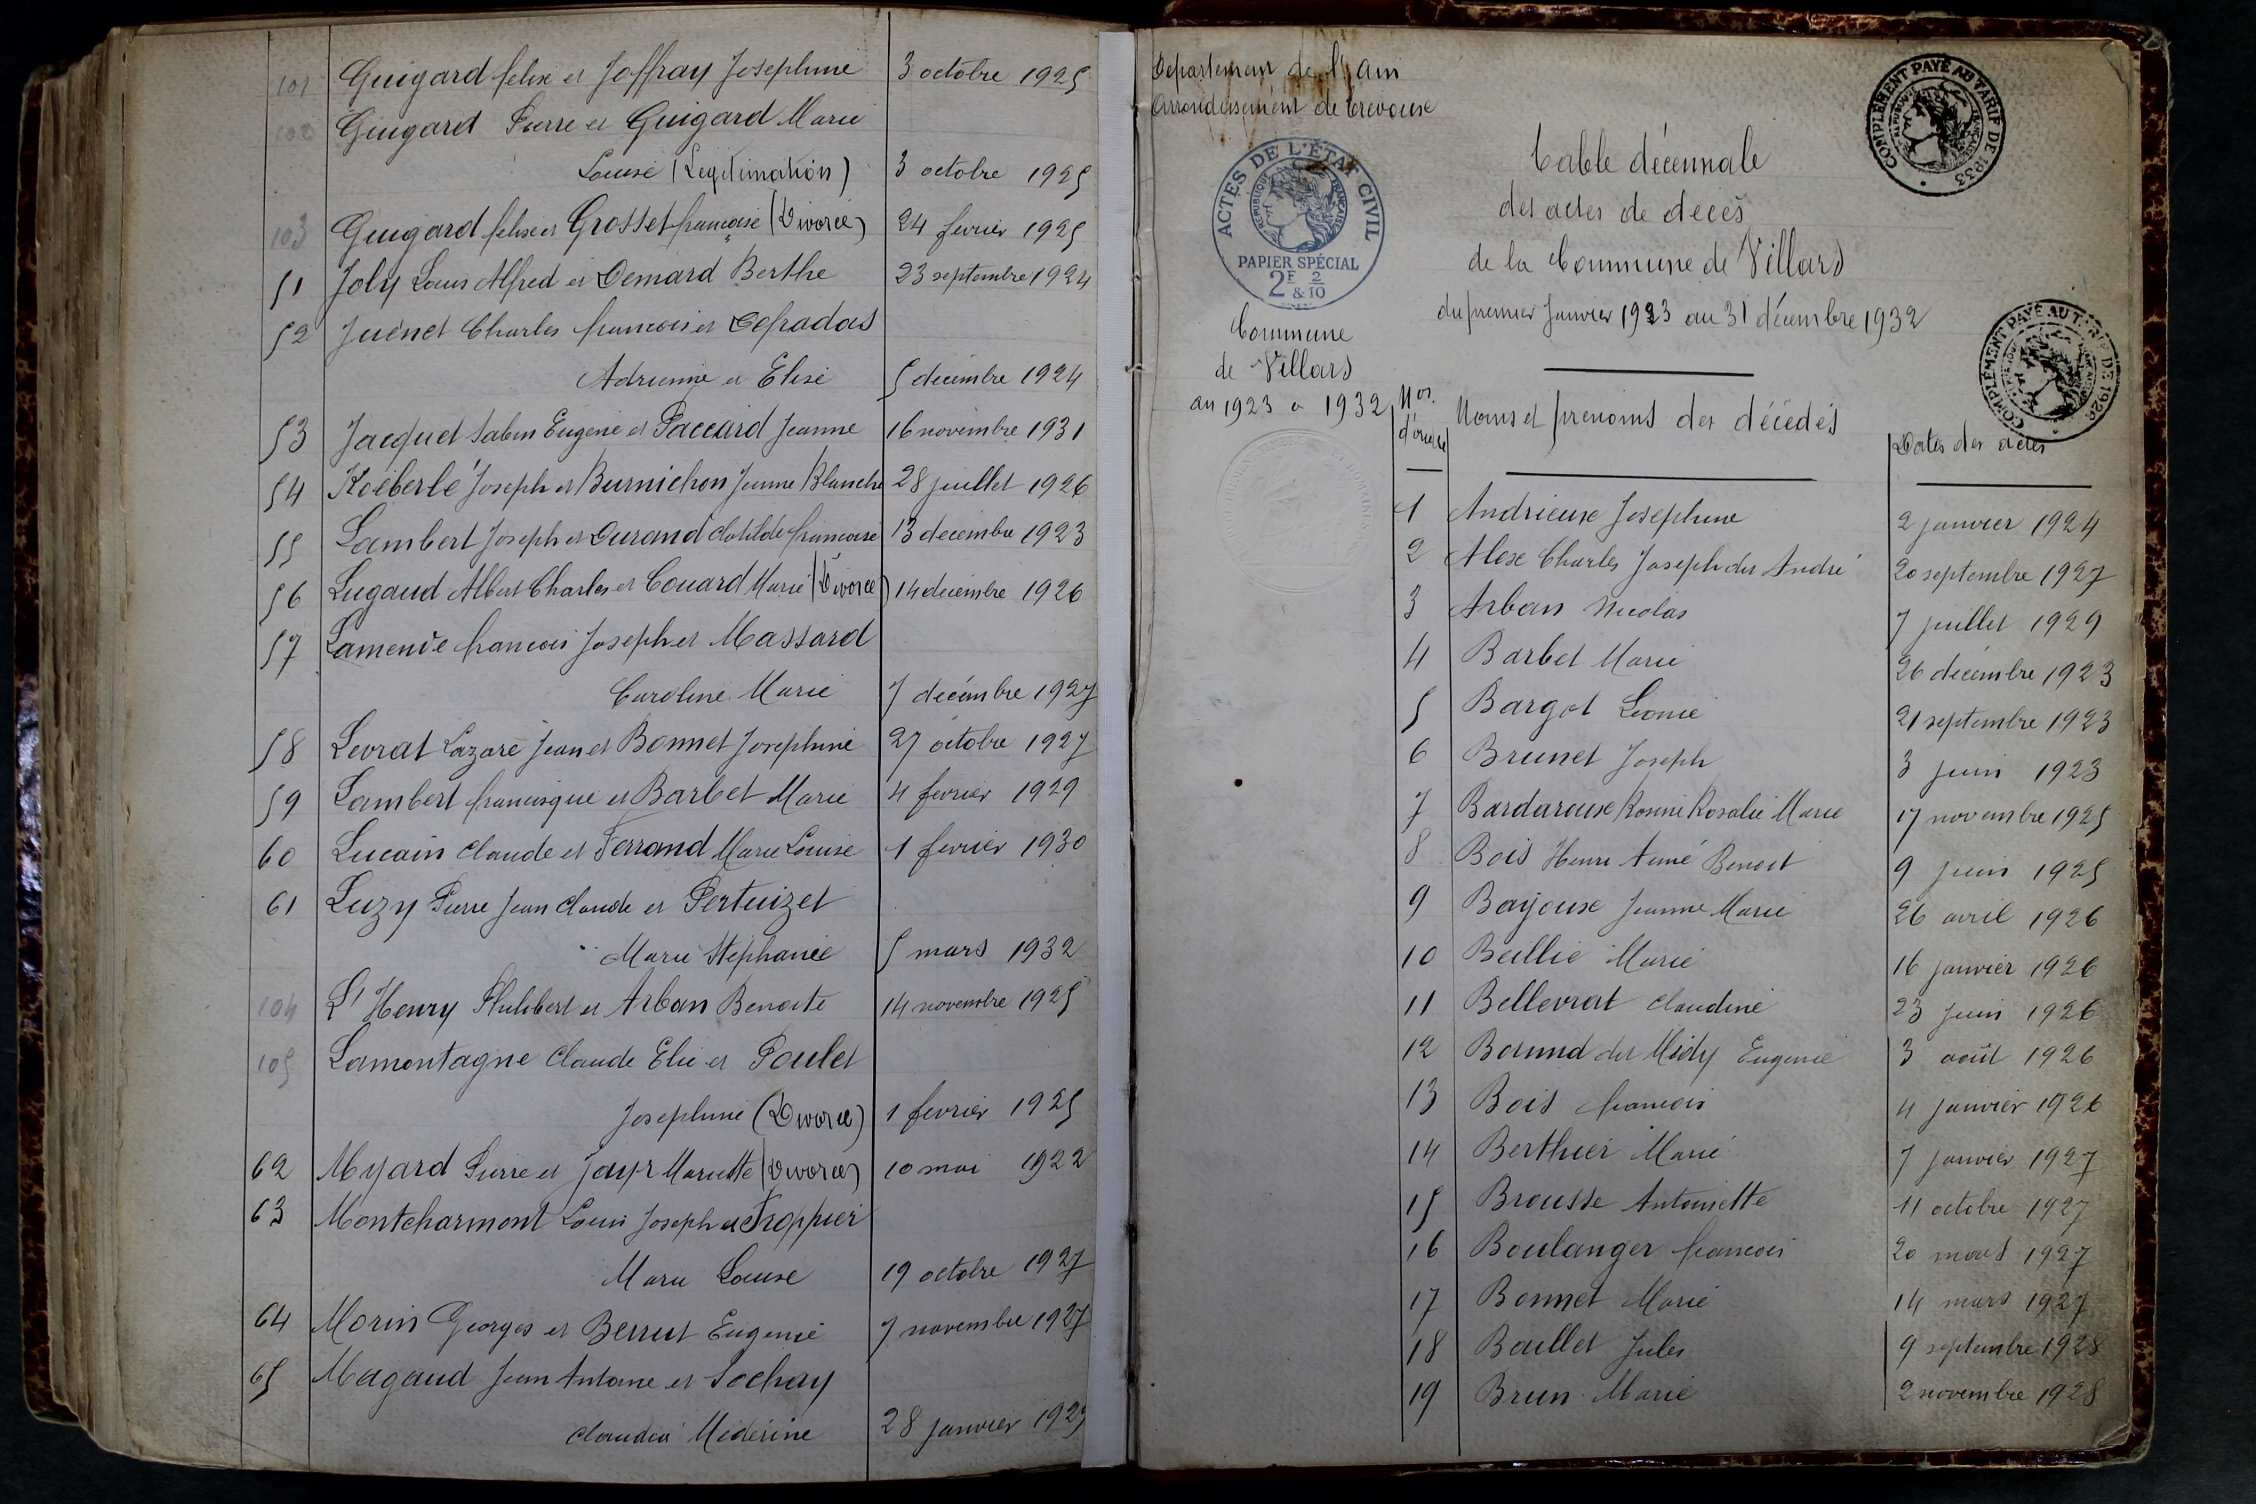 101 Guigard felix et Joffray Josephine 3 octobre 1925
102 Guigard Pierre et Guigard Marie
Louise (Legitimation) 3 octobre 1925
103 Guigard felix et Grosset françoise (Divorce) 24 fevrier 1925
51 Joly Louis Alfred et Demard Berthe 23 septembre 1924
52 Juenet Charles francois et Defradas
Adrienne et Elise 5 decembre 1924
53 Jacquet Sabin Eugene et Paccard Jeanne 16 novembre 1931
54 Koëberlé Joseph et Burnichon Jeanne Blanche 28 juillet 1926
55 Lambert Joseph et Durand Clotilde francoise 13 decembre 1923
56 Lugaud Albert Charles et Couard Marie (Divorce) 14 decembre 1926
57 francois Joseph et Massard
Caroline Marie 7 decembre 1927
58 Levrat Lazare Jean et Bonnet Josephine 27 octobre 1927
59 Lambert francisque et Barbet Marie 4 fevrier 1929
60 Lucain Claude et Ferrand Marie Louise 1 fevrier 1930
61 Luzy Pierre Jean Claude et Pertuizet
Marie Stephanie 5 mars 1932
104 L'Henry Philibert et Arban Benoite 14 novembre 1925
105 Lamontagne Claude Elie et Poulet
Josephine (Divorce) 1 fevrier 1925
62 Myard Pierre et Jayr Mariette (Divorce) 10 mai 1922
63 Montcharmont Louis Joseph et
Marie Louise 19 octobre 1927
64 Morin Georges et Berrut Eugenie 7 novembre 1927
65 Magaud Jean Antoine et Sochay
Claudia 28 janvier
Departement de l'ain
Arrondissement de trevoux
ACTES DE L'ÉTAT CIVIL
RÉPUBLIQUE FRANÇAISE
PAPIER SPÉCIAL
2F & 2/10
Commune
de Villars
an 1923 a 1932
COMPLÉMENT PAYÉ AU TARIF DE 1933
RÉPUBLIQUE FRANÇAISE
Table décennale
des actes de decès
de la Commune de Villars
du premier Janvier 1923 au 31 décembre 1932
COMPLÉMENT PAYÉ AU TARIF DE 1926
Nos. d'ordre Noms et prenoms des décédés Dates des actes
1 Andrieux Josephine 2 janvier 1924
2 Alex Charles Joseph dit André 20 septembre 1927
3 Arban Nicolas 7 juillet 1929
4 Barbet Marie 26 decembre 1923
5 Bargot Leonie 21 septembre 1923
6 Brunet Joseph 3 juin 1923
7 Bardaroux Rosine Rosalie Marie 17 novembre 1925
8 Bois Henri Aimé Benoit 9 juin 1925
9 Bayoux Jeanne Marie 26 avril 1926
10 Marie 16 janvier 1926
11 Bellevrat Claudine 23 juin 1926
12 dit Midy Eugenie 3 août 1926
13 Bois francois 4 janvier 1926
14 Berthier Marie 7 janvier 1927
15 Brousse Antoinette 11 octobre 1927
16 Boulanger francois 20 mars 1927
17 Bonnet Marie 14 mars 1927
18 Boullet Jules 9 septembre 1928
19 Brun Marie 2 novembre 1928